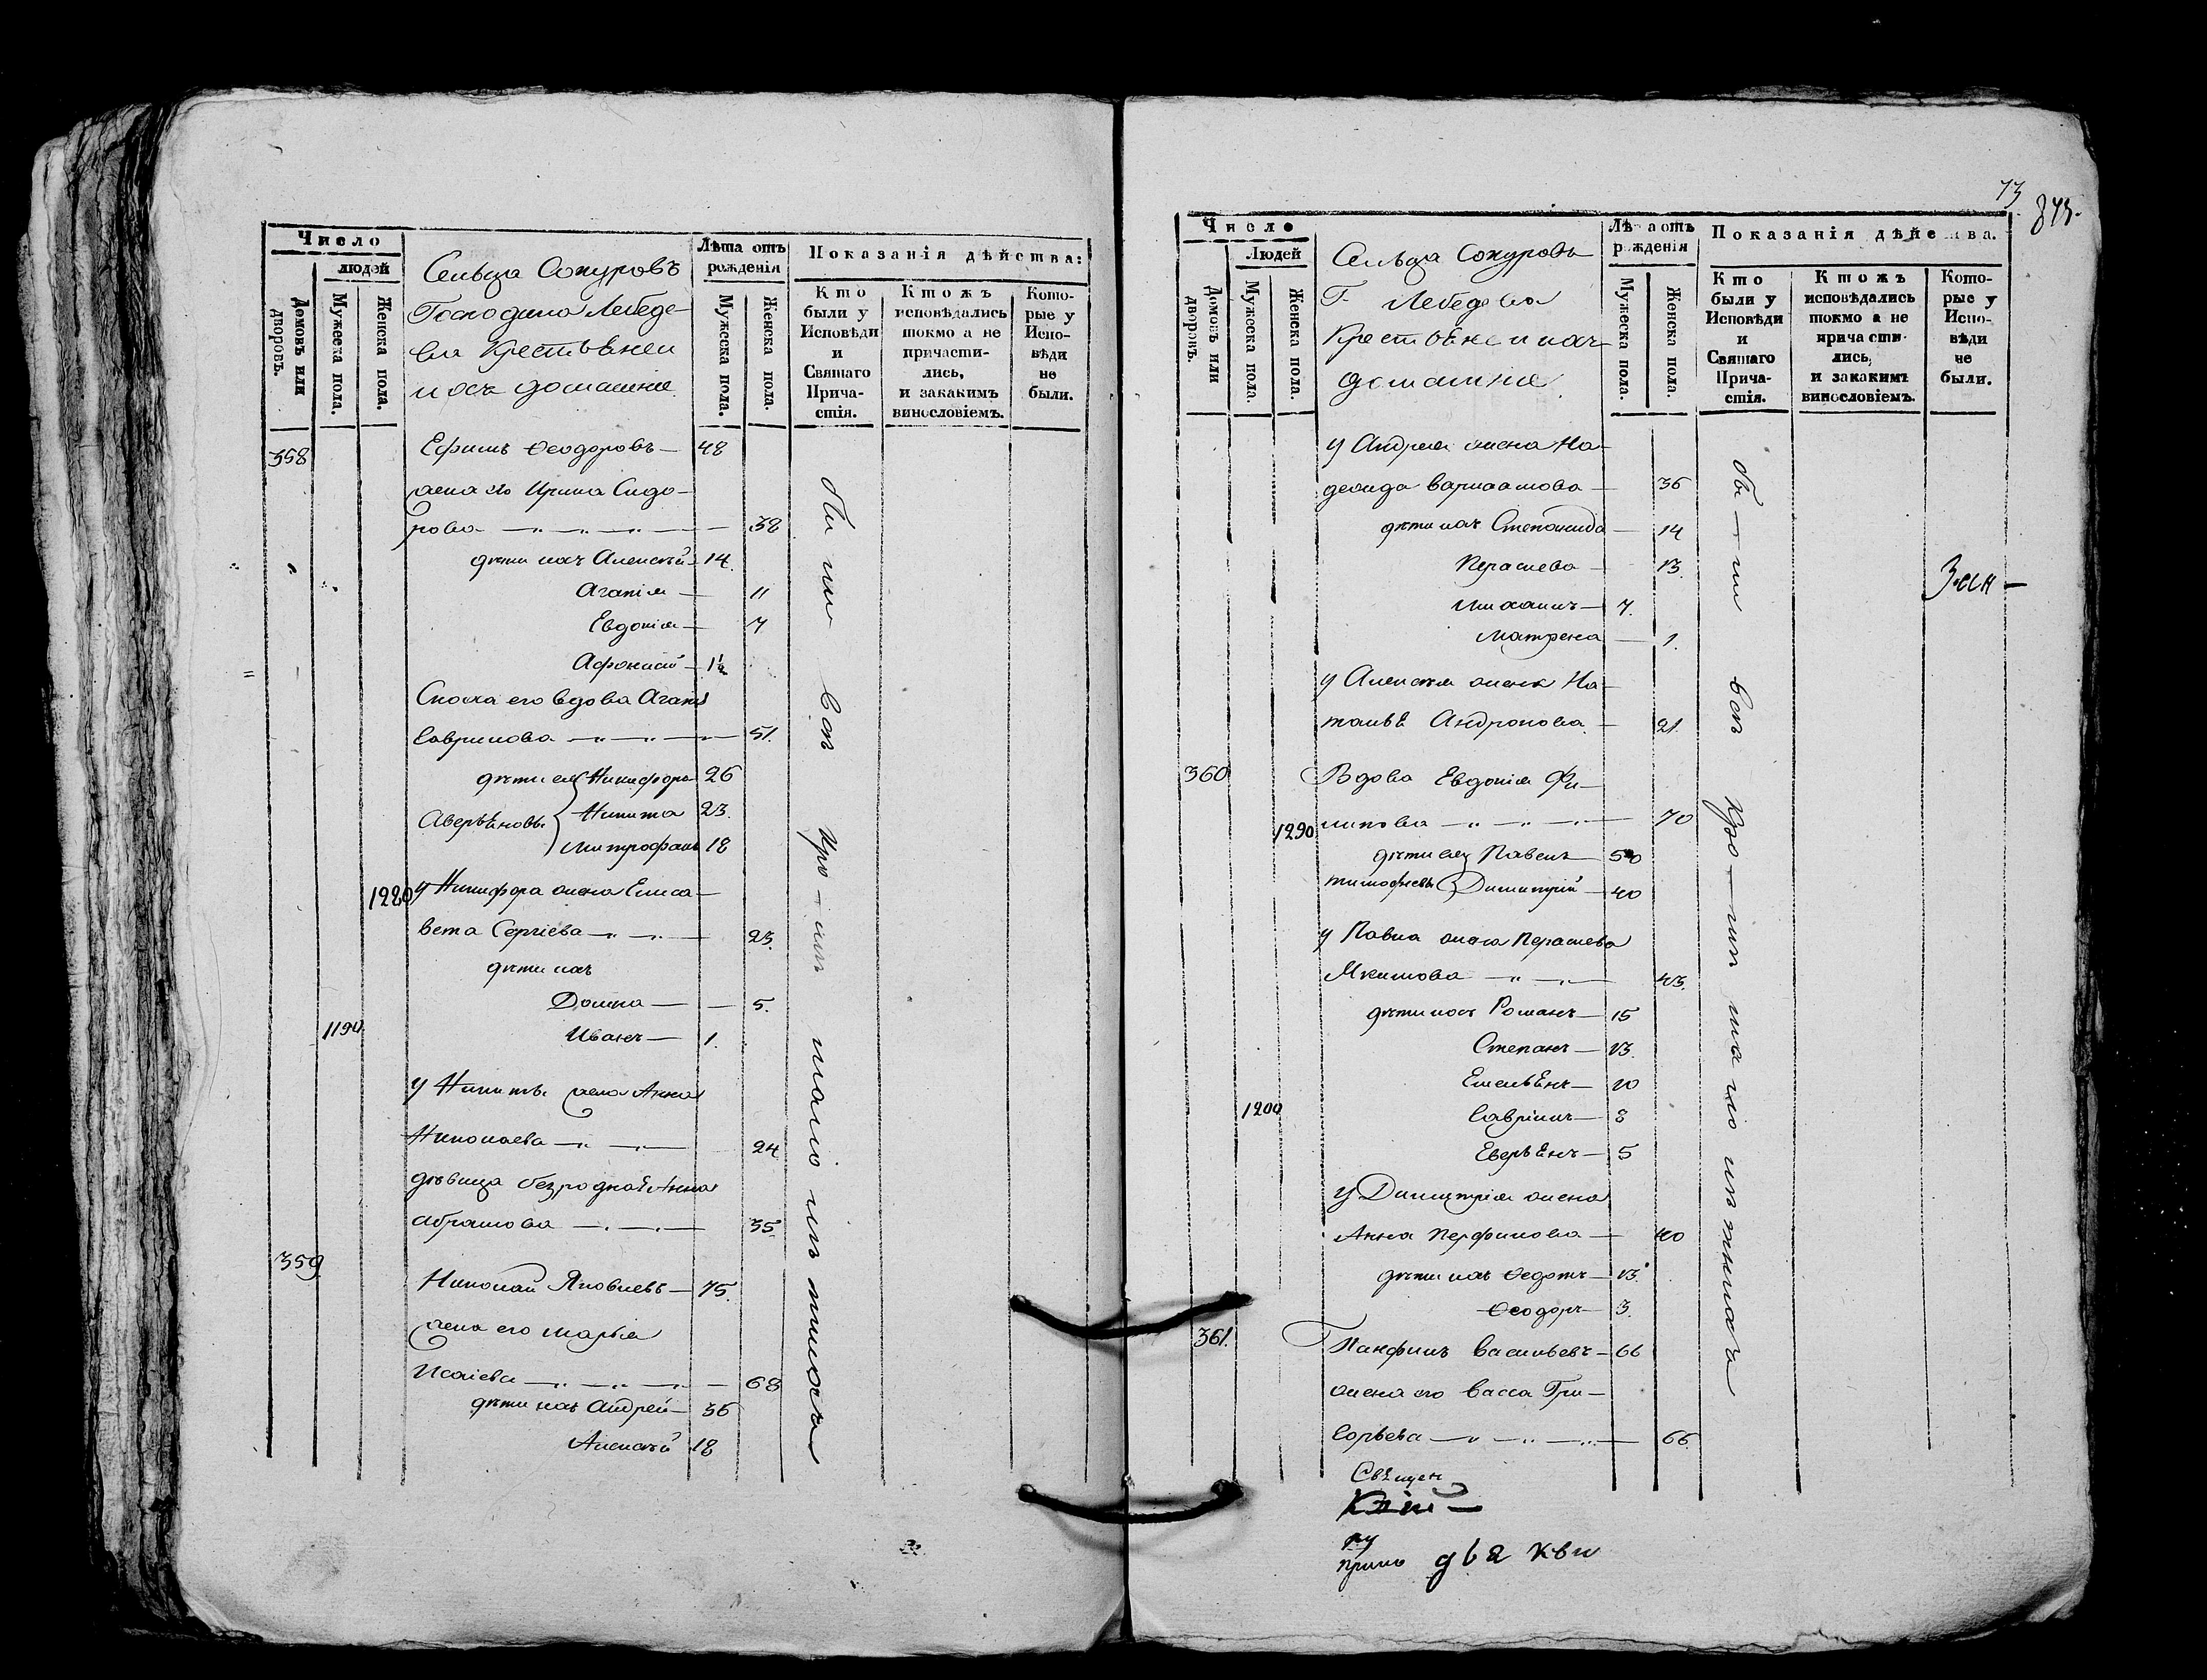 Число
людей
Домовъ или дворовъ.
Мужеска пола.
Женска пола.
Сельца Сокуровъ
Господина Лебеде-
ва Крестьѣнеи
и ихъ домашніе
Лѣта отъ рожденія
Мужеска пола.
Женска пола.
Показанія дѣйства:
Кто были у Исповѣди и Святаго Прича-стія.
Ктожъ исповѣдались токмо а не причасти-лись, и закакимъ винословіемъ.
Кото-рые у Испо-вѣди не были.
358 Ефимъ Ѳеодоровъ — 48
жена его Ирина Сидо-
рова — 38
дѣти ихъ Алексѣй — 14.
Агапія — 11
Евдокія — 7
Афонасій — 1½
Сноха его вдова Агапія
Гаврилова — 51.
дѣти ея Никифоръ 26
Аверьѣновы Никита 23.
Митрофанъ 18
1280 у Никифора жена Елиса-
вета Сергіева — 23.
дѣти ихъ
Домна — 5.
1190. Иванъ — 1.
у Никиты жена Анна
Николаева — 24
дѣвица безроднаѣ Анна
Абрамова — 35
359. Николай Яковлевъ — 75.
жена его Марья
Исаіева — 68
дѣти ихъ Андрей — 36
Алексѣй 18
73
845.
Число
Людей
Домовъ или дворовъ.
Мужеска пола.
Женска пола.
Сельца Сокуровъ
Г. Лебедева
Крестьѣне и ихъ
домашніе
Лѣта отъ рожденія
Мужеска пола.
Женска пола.
Показанія дѣйства.
Кто были у Исповѣди и Святаго Прича-стія.
Ктожъ исповѣдались токмо а не прича сти-лись, и закакимъ винословіемъ.
Кото-рые у Испо-вѣди не были.
у Андрея жена На-
дежда Варлаамова — 36
дѣти ихъ Степанида — 14
Парасева — 13.
Михаилъ — 7.
Матрена — 1.
у Алексѣя жена На-
тальѣ Андронова — 21.
360 Вдова Евдокія Фи-
1290 липова — 70
дѣти ея Павелъ — 50
Тимофѣевы Димитрій — 40
у Павла жена Парасева
Якимова — 43.
дѣти ихъ Романъ — 15
Степанъ — 13.
Емельѣнъ — 10
1200 Гавріилъ — 8
Еверьѣнъ — 5
у Димитрія жена
Анна Перфилова — 40
дѣти ихъ Ѳедотъ — 13.
Ѳеодоръ — 3.
361. Панфилъ Васильевъ — 66
жена его Васса Гри-
горьева — 66.
Свѣщен
прим